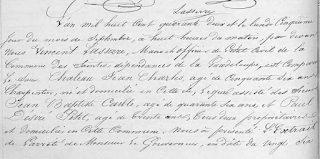 Lasserre
L'an mil huit cent quarante deux et le lundi cinquième
jour du mois de Septembre, à huit heures du matin, par devant
Nous Vincent Lasserre, Maire et officier de l'état Civil de la
Commune des Saintes, dépendances de la Guadeloupe, est Comparu
le sieur Jean Charles, agé de Cinquante six ans
Charpentier, né et domicilié en Cette île, lequel assisté des sieurs
Jean Baptiste agé de quarante six ans et Paul
Désiré Petit, agé de trente ans, tous deux propriétaires
et domiciliés en Cette Commune, Nous a présenté l'Extrait
de l'arrêté de Monsieur le Gouverneur, en date du vingt six